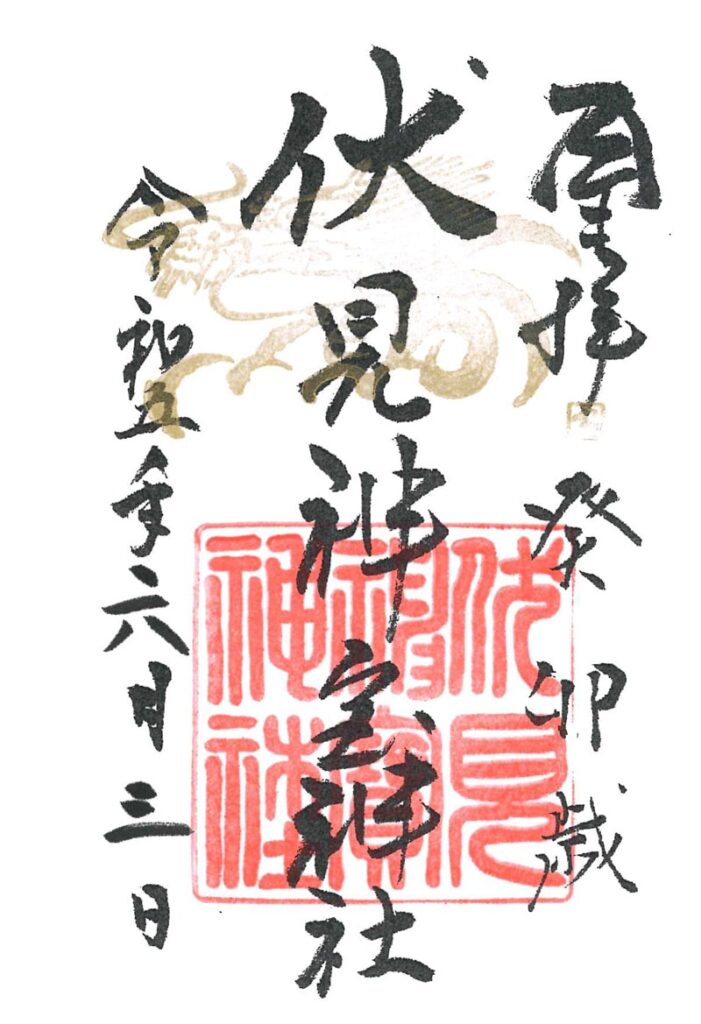 拝 癸卯歳
伏見神宝神社
令和五年六月三日
伏見
神寶
神社